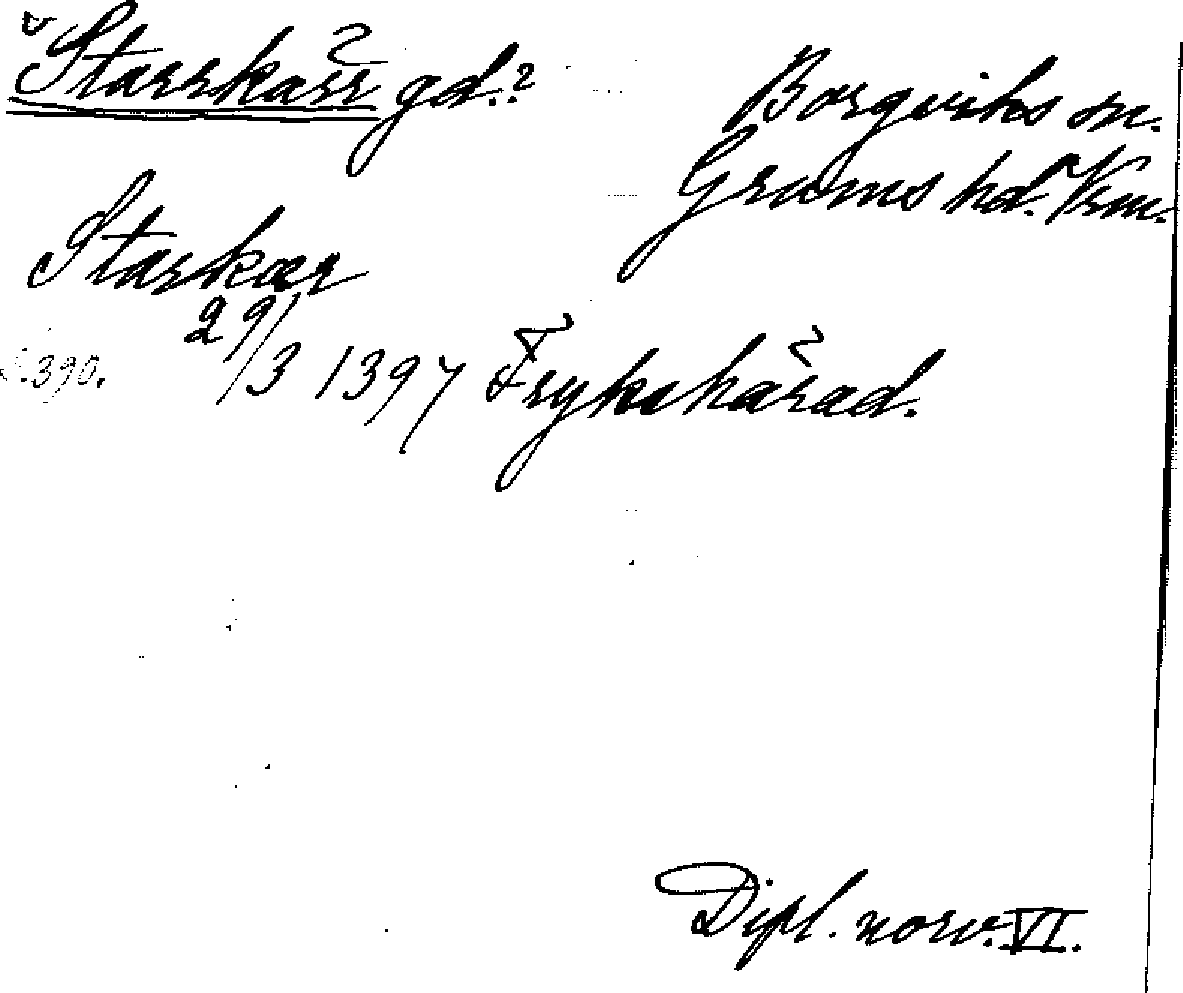 Starrkärr gd.?
Borgviks sn.
Grums hd. Vrm.
Starkær
S. 390. 29/3 1397 Frykshärad.
Dipl. norv. VI.